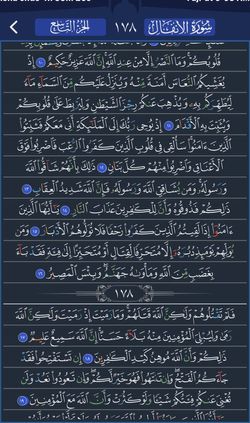 سُورَةُ الأَنفَال
١٧٨
الجُزءُ التَّاسِع
قُلُوبُكُمْ وَمَا ٱلنَّصْرُ إِلَّا مِنْ عِندِ ٱللَّهِ إِنَّ ٱللَّهَ عَزِيزٌ حَكِيمٌ ١٠ إِذْ
يُغَشِّيكُمُ ٱلنُّعَاسَ أَمَنَةً مِّنْهُ وَيُنَزِّلُ عَلَيْكُم مِّنَ ٱلسَّمَآءِ مَآءً
لِّيُطَهِّرَكُم بِهِۦ وَيُذْهِبَ عَنكُمْ رِجْزَ ٱلشَّيْطَٰنِ وَلِيَرْبِطَ عَلَىٰ قُلُوبِكُمْ
وَيُثَبِّتَ بِهِ ٱلْأَقْدَامَ ١١ إِذْ يُوحِى رَبُّكَ إِلَى ٱلْمَلَٰٓئِكَةِ أَنِّى مَعَكُمْ فَثَبِّتُوا۟
ٱلَّذِينَ ءَامَنُوا۟ سَأُلْقِى فِى قُلُوبِ ٱلَّذِينَ كَفَرُوا۟ ٱلرُّعْبَ فَٱضْرِبُوا۟ فَوْقَ
ٱلْأَعْنَاقِ وَٱضْرِبُوا۟ مِنْهُمْ كُلَّ بَنَانٍ ١٢ ذَٰلِكَ بِأَنَّهُمْ شَآقُّوا۟ ٱللَّهَ
وَرَسُولَهُۥ وَمَن يُشَاقِقِ ٱللَّهَ وَرَسُولَهُۥ فَإِنَّ ٱللَّهَ شَدِيدُ ٱلْعِقَابِ ١٣
ذَٰلِكُمْ فَذُوقُوهُ وَأَنَّ لِلْكَٰفِرِينَ عَذَابَ ٱلنَّارِ ١٤ يَٰٓأَيُّهَا ٱلَّذِينَ
ءَامَنُوٓا۟ إِذَا لَقِيتُمُ ٱلَّذِينَ كَفَرُوا۟ زَحْفًا فَلَا تُوَلُّوهُمُ ٱلْأَدْبَارَ ١٥ وَمَن
يُوَلِّهِمْ يَوْمَئِذٍ دُبُرَهُۥٓ إِلَّا مُتَحَرِّفًا لِّقِتَالٍ أَوْ مُتَحَيِّزًا إِلَىٰ فِئَةٍ فَقَدْ بَآءَ
بِغَضَبٍ مِّنَ ٱللَّهِ وَمَأْوَىٰهُ جَهَنَّمُ وَبِئْسَ ٱلْمَصِيرُ ١٦
١٧٨
فَلَمْ تَقْتُلُوهُمْ وَلَٰكِنَّ ٱللَّهَ قَتَلَهُمْ وَمَا رَمَيْتَ إِذْ رَمَيْتَ وَلَٰكِنَّ ٱللَّهَ
رَمَىٰ وَلِيُبْلِىَ ٱلْمُؤْمِنِينَ مِنْهُ بَلَآءً حَسَنًا إِنَّ ٱللَّهَ سَمِيعٌ عَلِيمٌ ١٧
ذَٰلِكُمْ وَأَنَّ ٱللَّهَ مُوهِنُ كَيْدِ ٱلْكَٰفِرِينَ ١٨ إِن تَسْتَفْتِحُوا۟ فَقَدْ
جَآءَكُمُ ٱلْفَتْحُ وَإِن تَنتَهُوا۟ فَهُوَ خَيْرٌ لَّكُمْ وَإِن تَعُودُوا۟ نَعُدْ وَلَن
تُغْنِىَ عَنكُمْ فِئَتُكُمْ شَيْـًٔا وَلَوْ كَثُرَتْ وَأَنَّ ٱللَّهَ مَعَ ٱلْمُؤْمِنِينَ ١٩